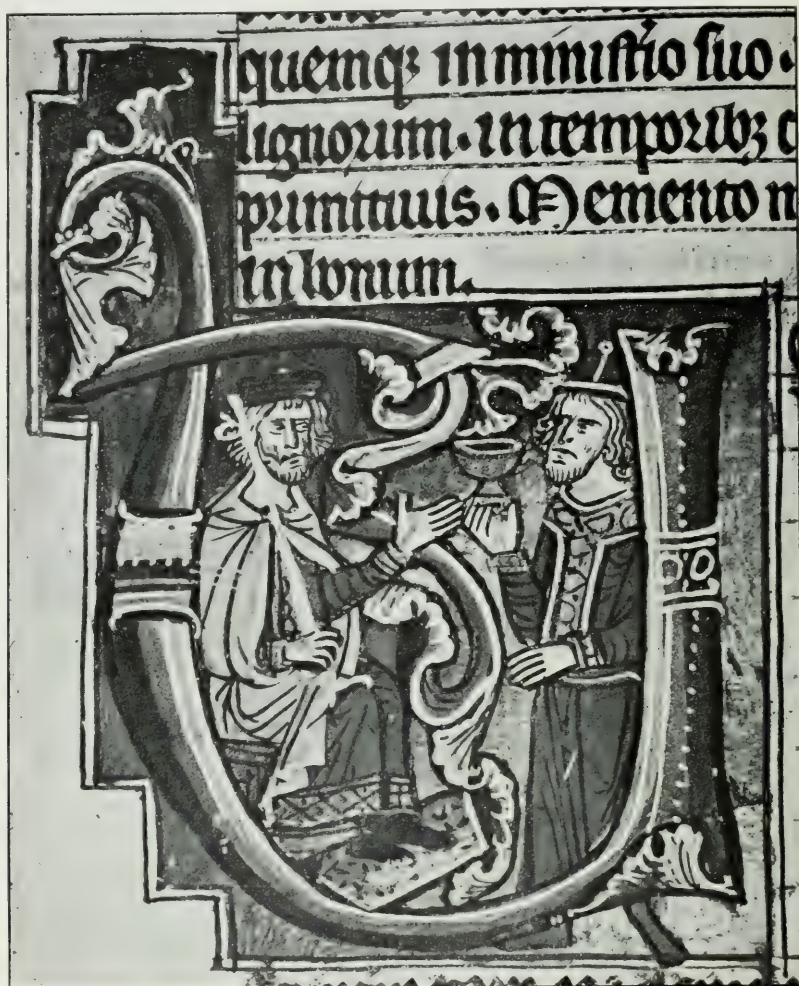 quemqꝫ in ministio suo.
lignorum. in temporibꝫ
primitiuis. Memento
in bonum.